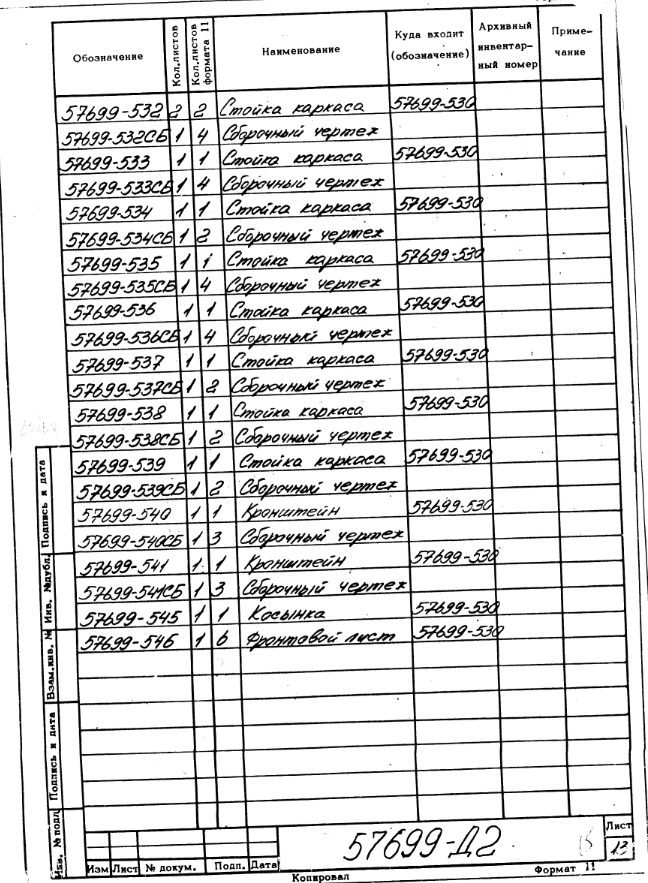 Обозначение Кол.листов Кол.листов формата 11 Наименование Куда входит (обозначение) Архивный инвентарный номер Примечание
57699-532 2 2 Стойка каркаса 57699-530
57699-532СБ 1 4 Сборочный чертеж
57699-533 1 1 Стойка каркаса 57699-530
57699-533СБ 1 4 Сборочный чертеж
57699-534 1 1 Стойка каркаса 57699-530
57699-534СБ 1 2 Сборочный чертеж
57699-535 1 1 Стойка каркаса 57699-530
57699-535СБ 1 4 Сборочный чертеж
57699-536 1 1 Стойка каркаса 57699-530
57699-536СБ 1 4 Сборочный чертеж
57699-537 1 1 Стойка каркаса 57699-530
57699-537СБ 1 2 Сборочный чертеж
57699-538 1 1 Стойка каркаса 57699-530
57699-538СБ 1 2 Сборочный чертеж
57699-539 1 1 Стойка каркаса 57699-530
57699-539СБ 1 2 Сборочный чертеж
57699-540 1 1 Кронштейн 57699-530
57699-540СБ 1 3 Сборочный чертеж
57699-541 1 1 Кронштейн 57699-530
57699-541СБ 1 3 Сборочный чертеж
57699-545 1 1 Косынка 57699-530
57699-546 1 6 Фронтовой лист 57699-530
Подпись и дата
Инв. №дубл.
Взам.инв. №
Подпись и дата
Инв. № подл
57699-Д2
Лист
13
Изм Лист № докум. Подп. Дата
Копировал Формат 11